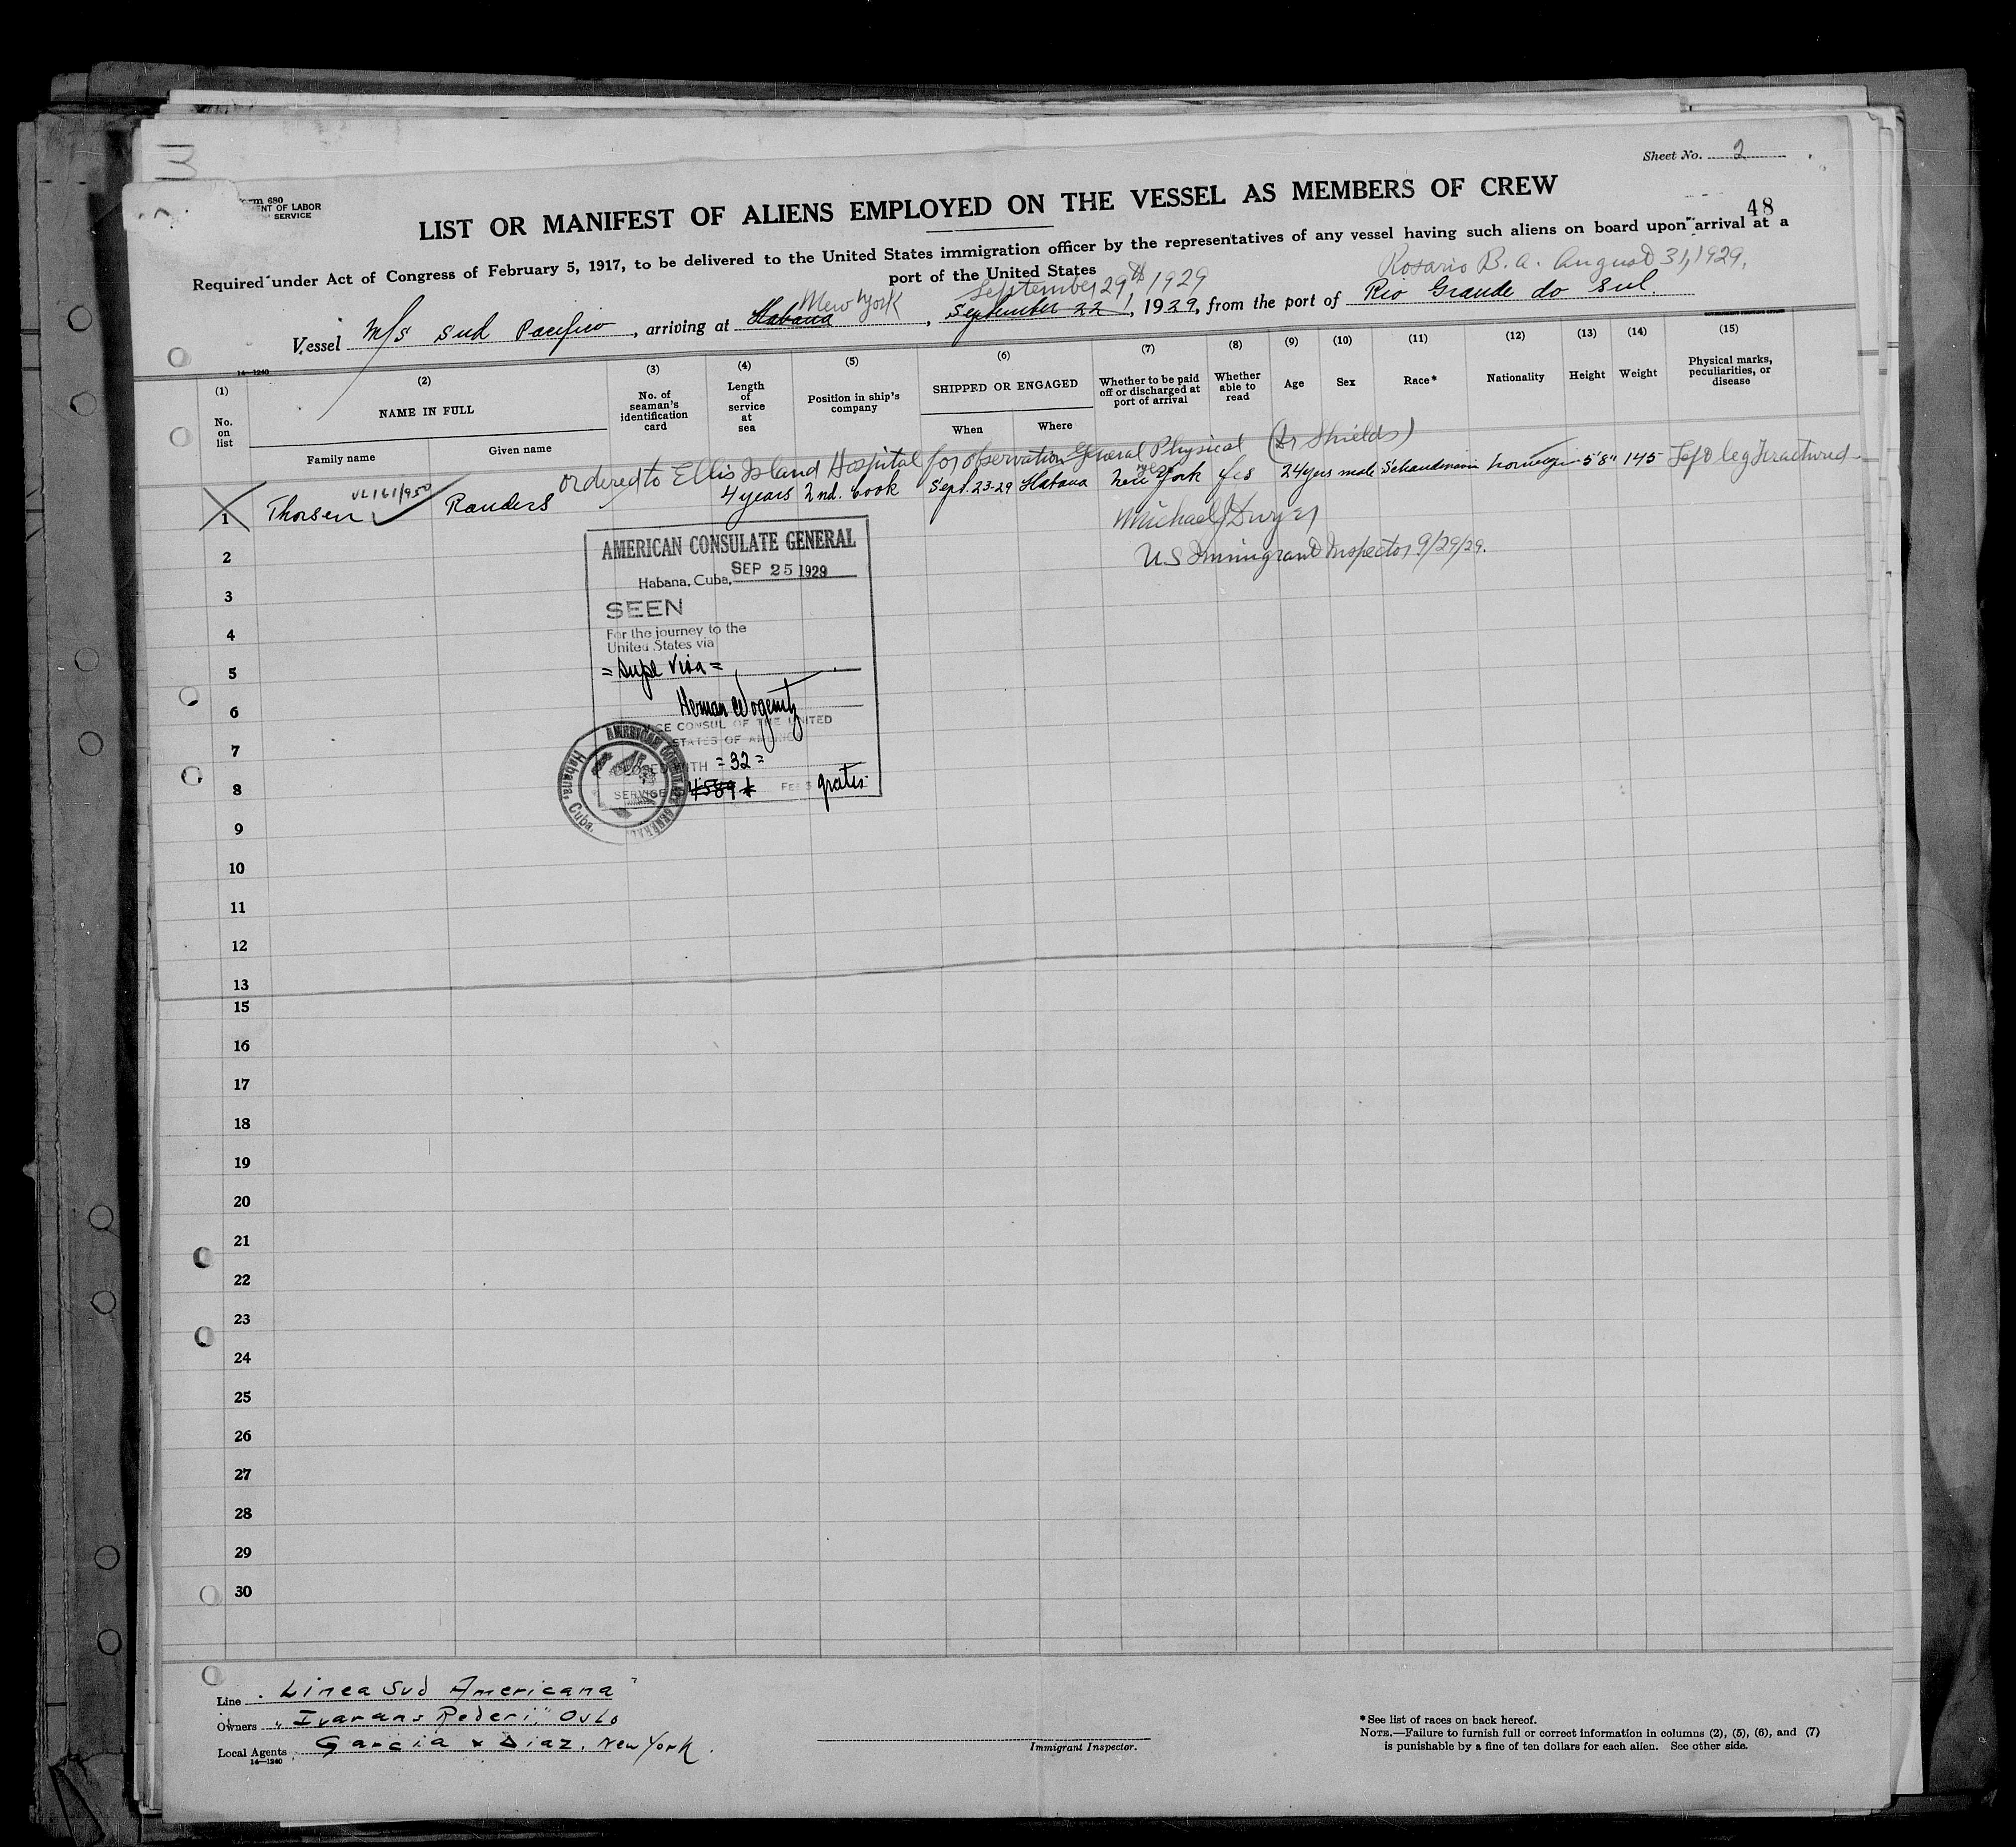 Sheet No. 2
48
rm 680
ENT OF LABOR
SERVICE
LIST OR MANIFEST OF ALIENS EMPLOYED ON THE VESSEL AS MEMBERS OF CREW
Required under Act of Congress of February 5, 1917, to be delivered to the United States immigration officer by the representatives of any vessel having such aliens on board upon arrival at a
port of the United States
New York September 29th 1929 Rosario B. A. August 31, 1929.
Vessel M/S Sud Pacifico, arriving at Habana, September 22, 1929, from the port of Rio Grande do Sul.
14—1240
(1) No. on list
(2) NAME IN FULL
Family name Given name
(3) No. of seaman's identification card
(4) Length of service at sea
(5) Position in ship's company
(6) SHIPPED OR ENGAGED
When Where
(7) Whether to be paid off or discharged at port of arrival
(8) Whether able to read
(9) Age
(10) Sex
(11) Race*
(12) Nationality
(13) Height
(14) Weight
(15) Physical marks, peculiarities, or disease
ordered to Ellis Island Hospital for observation General Physical (Dr Shields)
VL161/950
yes
1 Thorsen Randers 4 years 2nd. Cook Sept. 23-29 Habana New York yes 24 yrs male Scandinavin Norwegian 5'8" 145 Left leg fractured
Michael J Dwyer
U S Immigrant Inspector 9/29/29.
AMERICAN CONSULATE GENERAL
Habana, Cuba, SEP 25 1929
SEEN
For the journey to the
United States via
= Supl Visa =
Herman
VICE CONSUL OF THE UNITED
STATES OF AMERICA
WITH = 32 =
SERVICE 4589 FEE $ gratis
AMERICAN CONSULATE GENERAL
Habana, Cuba.
2
3
4
5
6
7
8
9
10
11
12
13
15
16
17
18
19
20
21
22
23
24
25
26
27
28
29
30
Line "Linea Sud Americana"
Owners "Ivarans Rederi," Oslo
Local Agents Garcia & Diaz, New York.
14—1240
Immigrant Inspector.
*See list of races on back hereof.
NOTE.—Failure to furnish full or correct information in columns (2), (5), (6), and (7)
is punishable by a fine of ten dollars for each alien. See other side.